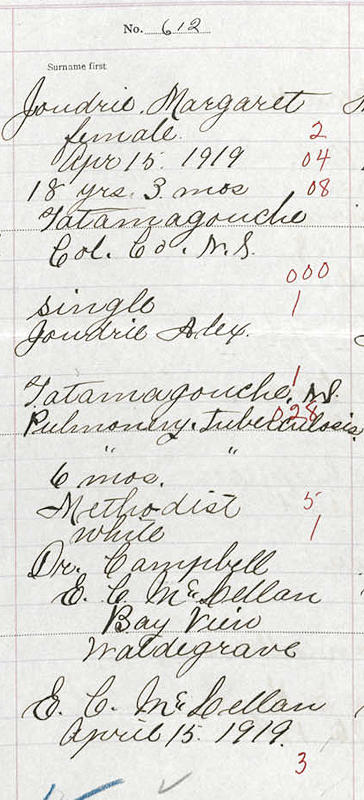 No. 612
Surname first
Joudrie, Margaret
female 2
Apr 15. 1919 04
18 yrs. 3 mos 08
Tatamagouche
Col. Co. N.S.
000
single 1
Joudrie Alex.
1
Tatamagouche, N.S.
Pulmonery Tuberculosis 028
" "
6 mos.
Methodist 5
white 1
Dr. Campbell
E. C. McLellan
Bay View
Waldegrave
E. C. McLellan
April 15. 1919.
3